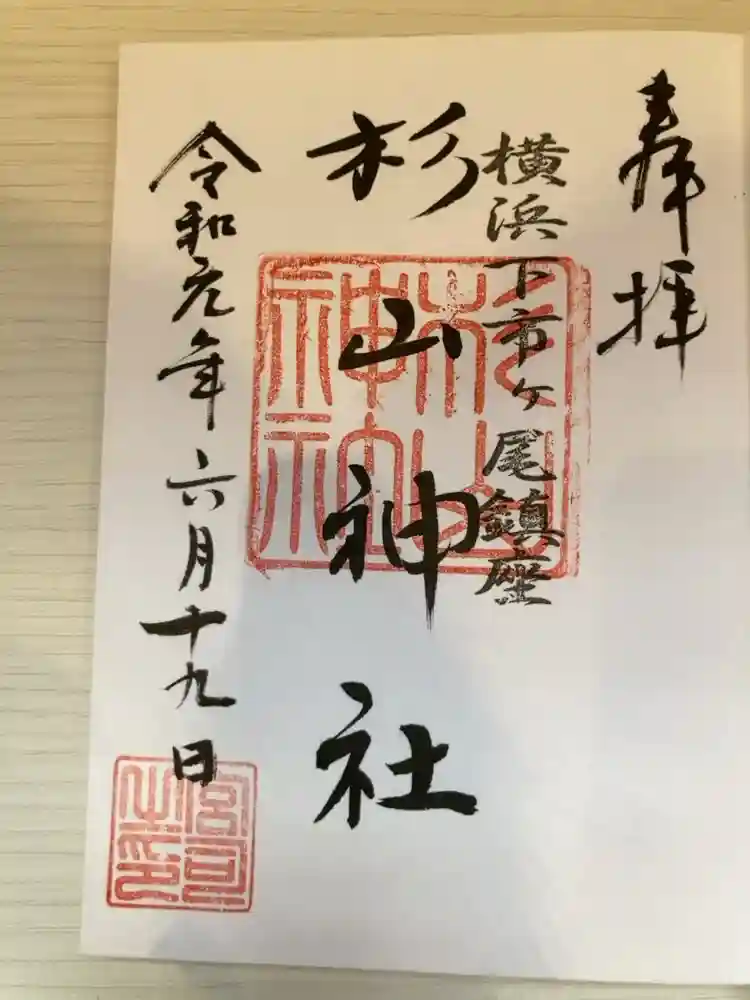 奉拝
横浜下市ケ尾鎮座
杉山神社
令和元年六月十九日
杉山
神社
宮司
之印